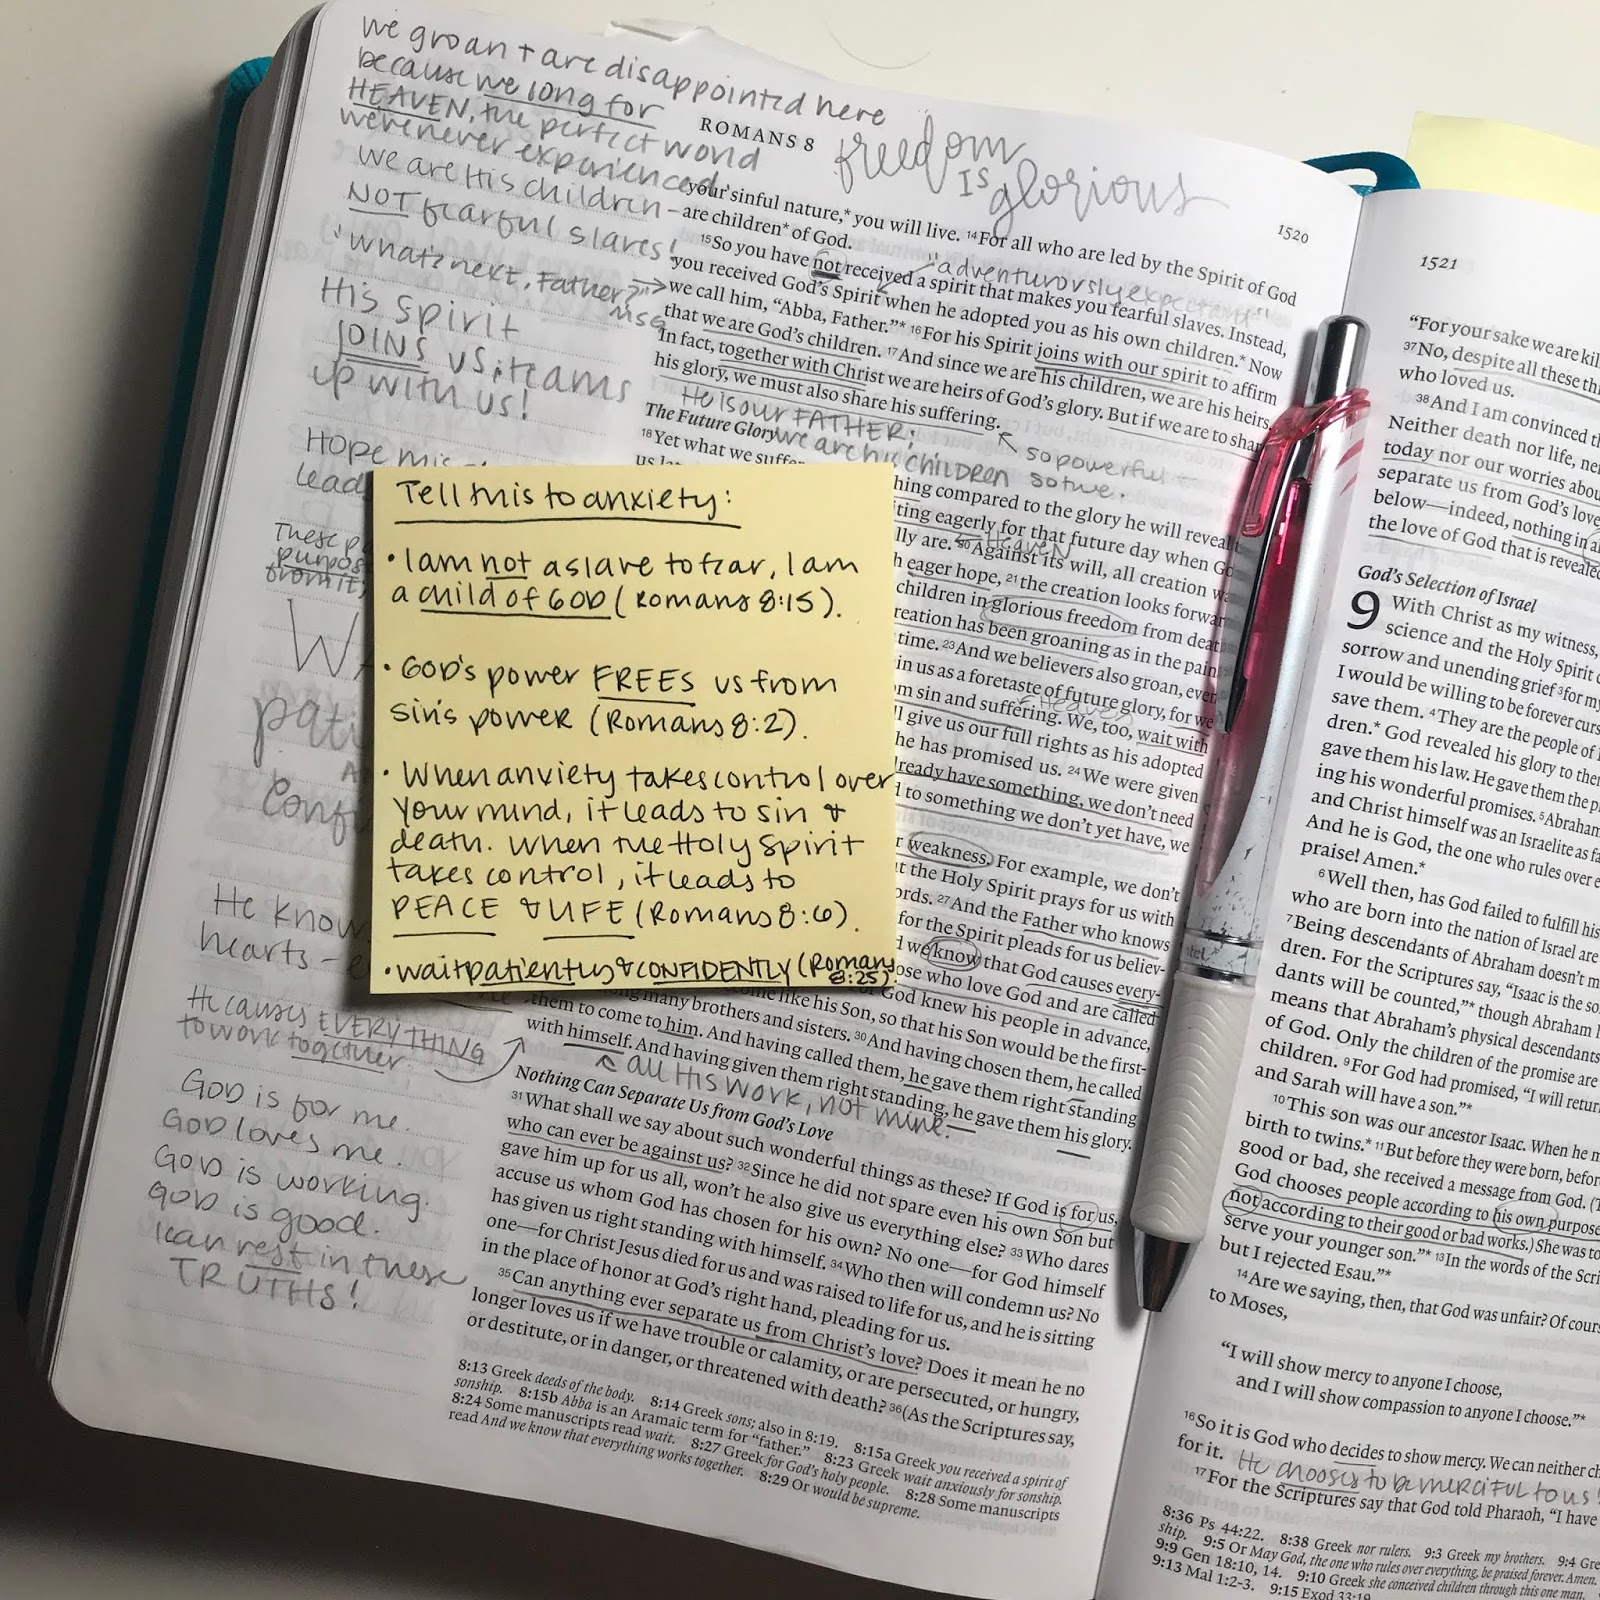 we groan + are disappointed here
because we long for
HEAVEN, the perfect world
we're never experienced
we are His children -
NOT fearful slaves!
"What's next, Father?"
MSG
His spirit
JOINS us; teams
up with us!
HOPE
lead
These
purpos
from it,
He know
hearts -
He causes EVERYTHING
to work together.
GOD is for me.
GOD loves me.
GOD is working.
GOD is good.
I can rest in these
TRUTHS!
ROMANS 8
freedom
IS
glorious
1520
your sinful nature,* you will live. 14For all who are led by the Spirit of God
are children* of God.
"adventurously expectant"
15So you have not received a spirit that makes you fearful slaves. Instead,
you received God's Spirit when he adopted you as his own children.* Now
we call him, "Abba, Father."* 16For his Spirit joins with our spirit to affirm
that we are God's children. 17And since we are his children, we are his heirs.
In fact, together with Christ we are heirs of God's glory. But if we are to shar
his glory, we must also share his suffering.
He is our FATHER;
we are his CHILDREN
so powerful +
so true.
The Future Glory
18Yet what we suffe
us la
hing compared to the glory he will reveal t
iting eagerly for that future day when Go
Heaven
lly are. 20Against its will, all creation w
h eager hope, 21the creation looks forwar
children in glorious freedom from death
reation has been groaning as in the pain
time. 23And we believers also groan, even
in us as a foretaste of future glory, for we
Heaven
om sin and suffering. We, too, wait with
ll give us our full rights as his adopted
he has promised us. 24We were given
lready have something, we don't need
d to something we don't yet have, we
r weakness. For example, we don't
t the Holy Spirit prays for us with
ords. 27And the Father who knows
for the Spirit pleads for us believ-
d we know that God causes every-
ose who love God and are called
r God knew his people in advance,
come like his Son, so that his Son would be the first-
ong many brothers and sisters. 30And having chosen them, he called
them to come to him. And having called them, he gave them right standing
with himself. And having given them right standing, he gave them his glory.
all His work, not mine.
Nothing Can Separate Us from God's Love
31What shall we say about such wonderful things as these? If God is for us,
who can ever be against us? 32Since he did not spare even his own Son but
gave him up for us all, won't he also give us everything else? 33Who dares
accuse us whom God has chosen for his own? No one—for God himself
has given us right standing with himself. 34Who then will condemn us? No
one—for Christ Jesus died for us and was raised to life for us, and he is sitting
in the place of honor at God's right hand, pleading for us.
35Can anything ever separate us from Christ's love? Does it mean he no
longer loves us if we have trouble or calamity, or are persecuted, or hungry,
or destitute, or in danger, or threatened with death? 36(As the Scriptures say,
8:13 Greek deeds of the body. 8:14 Greek sons; also in 8:19. 8:15a Greek you received a spirit of
sonship. 8:15b Abba is an Aramaic term for "father." 8:23 Greek wait anxiously for sonship.
8:24 Some manuscripts read wait. 8:27 Greek for God's holy people. 8:28 Some manuscripts
read And we know that everything works together. 8:29 Or would be supreme.
Tell this to anxiety:
• I am not a slave to fear, I am
a child of GOD (Romans 8:15).
• GOD's power FREES us from
sin's power (Romans 8:2).
• When anxiety takes control over
your mind, it leads to sin &
death. When the Holy Spirit
takes control, it leads to
PEACE & LIFE (Romans 8:6).
• wait patiently & CONFIDENTLY (Romans
8:25).
1521
"For your sake we are kil
37No, despite all these thi
who loved us.
38And I am convinced th
Neither death nor life, nei
today nor our worries abou
separate us from God's love
below—indeed, nothing in al
the love of God that is revealed
God's Selection of Israel
9 With Christ as my witness,
science and the Holy Spirit c
sorrow and unending grief 3for my
I would be willing to be forever curs
save them. 4They are the people of I
dren.* God revealed his glory to the
gave them his law. He gave them the p
ing his wonderful promises. 5Abraham
and Christ himself was an Israelite as fa
And he is God, the one who rules over e
praise! Amen.*
6Well then, has God failed to fulfill his
who are born into the nation of Israel are
7Being descendants of Abraham doesn't m
dren. For the Scriptures say, "Isaac is the so
dants will be counted,"* though Abraham
means that Abraham's physical descendants
of God. Only the children of the promise are
children. 9For God had promised, "I will retur
and Sarah will have a son."*
10This son was our ancestor Isaac. When he m
birth to twins.* 11But before they were born, befor
good or bad, she received a message from God. (T
God chooses people according to his own purpose
not according to their good or bad works.) She was to
serve your younger son."* 13In the words of the Scri
but I rejected Esau."*
14Are we saying, then, that God was unfair? Of cours
to Moses,
"I will show mercy to anyone I choose,
and I will show compassion to anyone I choose."*
16So it is God who decides to show mercy. We can neither ch
for it.
He chooses to be merciful to us!
17For the Scriptures say that God told Pharaoh, "I have
8:36 Ps 44:22. 8:38 Greek nor rulers. 9:3 Greek my brothers. 9:4 Gre
ship. 9:5 Or May God, the one who rules over everything, be praised forever. Amen.
9:9 Gen 18:10, 14. 9:10 Greek she conceived children through this one man.
9:13 Mal 1:2-3. 9:15 Exod 33:19.